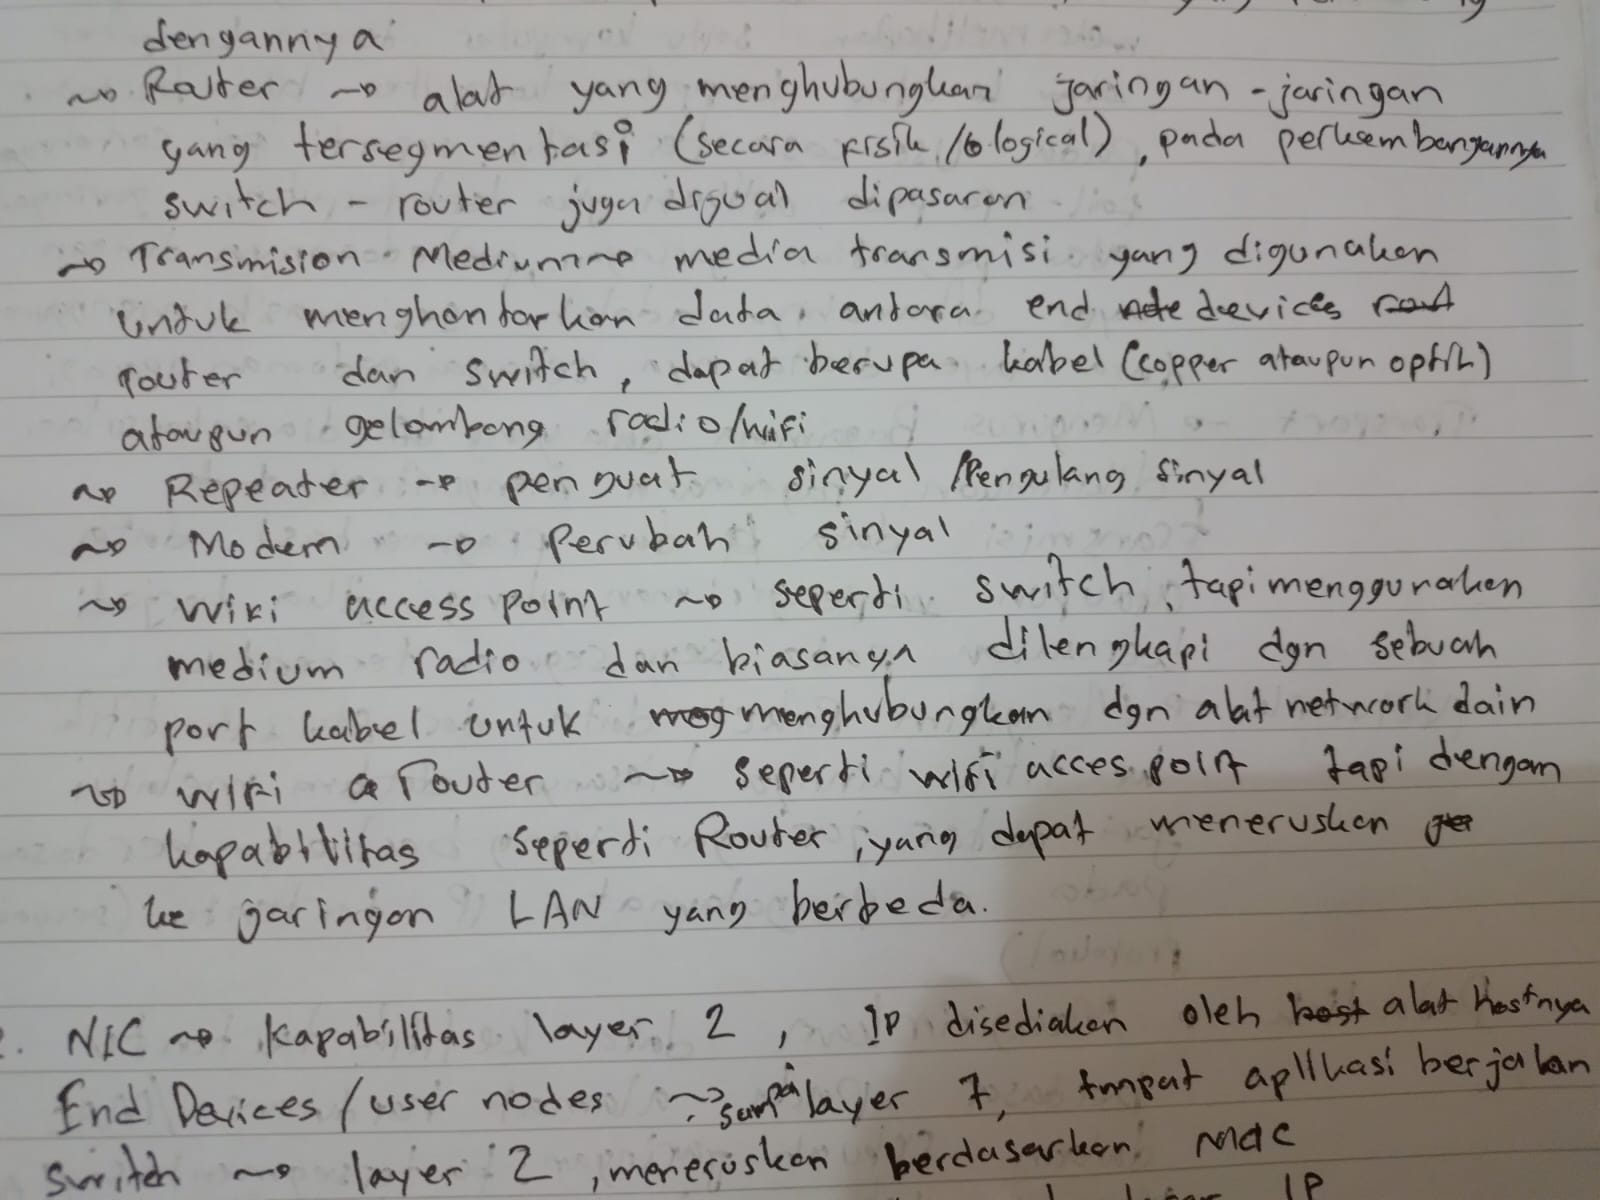 dengannya
~> Router ~> alat yang menghubungkan jaringan-jaringan
yang tersegmentasi (secara fisik / logical), pada perkembangannya
switch - router juga dijual dipasaran
~> Transmision Medium ~> media transmisi yang digunakan
untuk menghantarkan data antara end devices
router dan switch, dapat berupa kabel (copper ataupun optik)
ataupun gelombang radio/wifi
~> Repeater -> penguat sinyal /Pengulang sinyal
~> Modem -> Perubah sinyal
~> Wifi access point ~> seperti switch, tapi menggunakan
medium radio dan biasanya dilengkapi dgn sebuah
port kabel untuk menghubungkan dgn alat network dain
~> Wifi router ~> seperti wifi acces point tapi dengan
kapabilitas seperti Router, yang dapat meneruskan
ke jaringan LAN yang berbeda.
2. NIC ~> kapabilitas layer 2, IP disediakan oleh alat hostnya
End Devices / user nodes ~> sampai layer 7, tmpat aplikasi berjalan
switch ~> layer 2, meneruskan berdasarkan Mac
IP